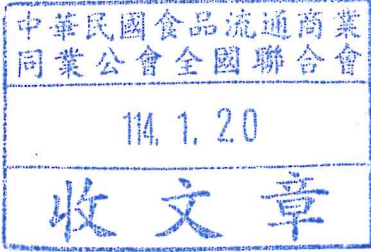 中華民國食品流通商業
同業公會全國聯合會
114. 1. 20
收文章